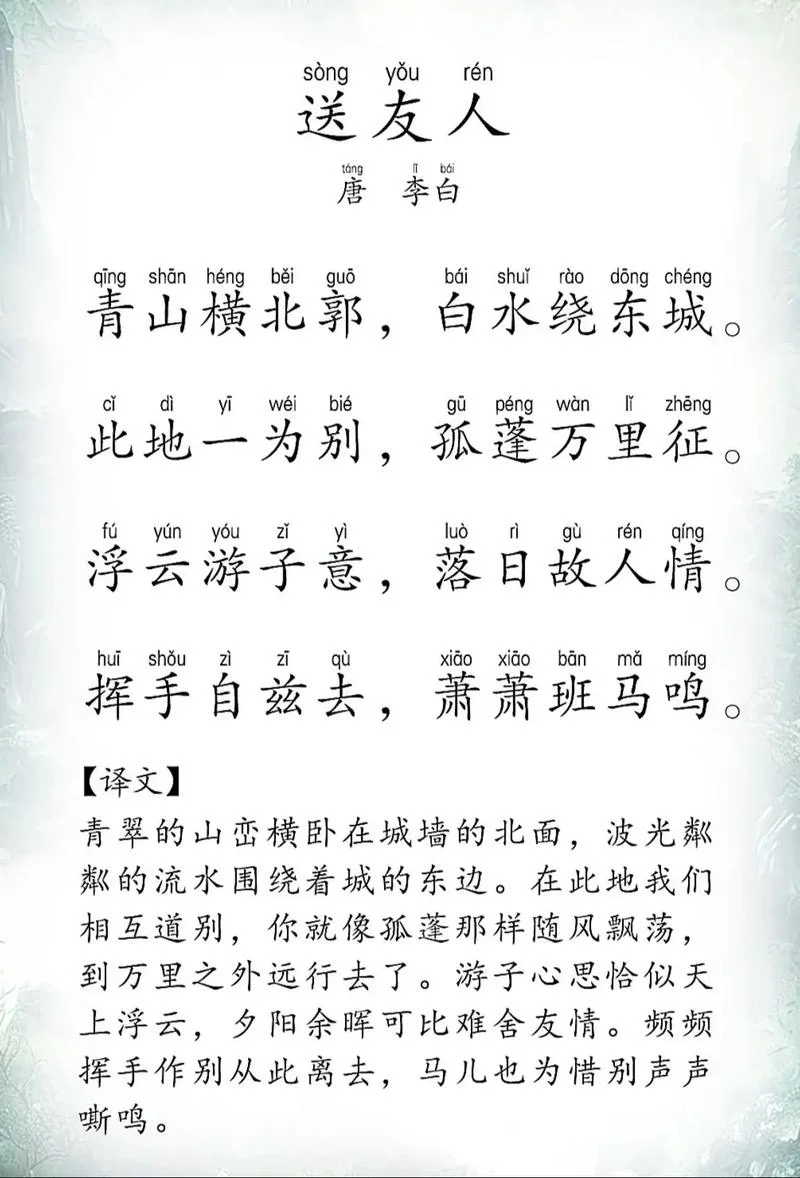 sòng yǒu rén
送友人
táng lǐ bái
唐 李白
qīng shān héng běi guō bái shuǐ rào dōng chéng
青山横北郭，白水绕东城。
cǐ dì yī wéi bié gū péng wàn lǐ zhēng
此地一为别，孤蓬万里征。
fú yún yóu zǐ yì luò rì gù rén qíng
浮云游子意，落日故人情。
huī shǒu zì zī qù xiāo xiāo bān mǎ míng
挥手自兹去，萧萧班马鸣。
【译文】
青翠的山峦横卧在城墙的北面，波光粼
粼的流水围绕着城的东边。在此地我们
相互道别，你就像孤蓬那样随风飘荡，
到万里之外远行去了。游子心思恰似天
上浮云，夕阳余晖可比难舍友情。频频
挥手作别从此离去，马儿也为惜别声声
嘶鸣。